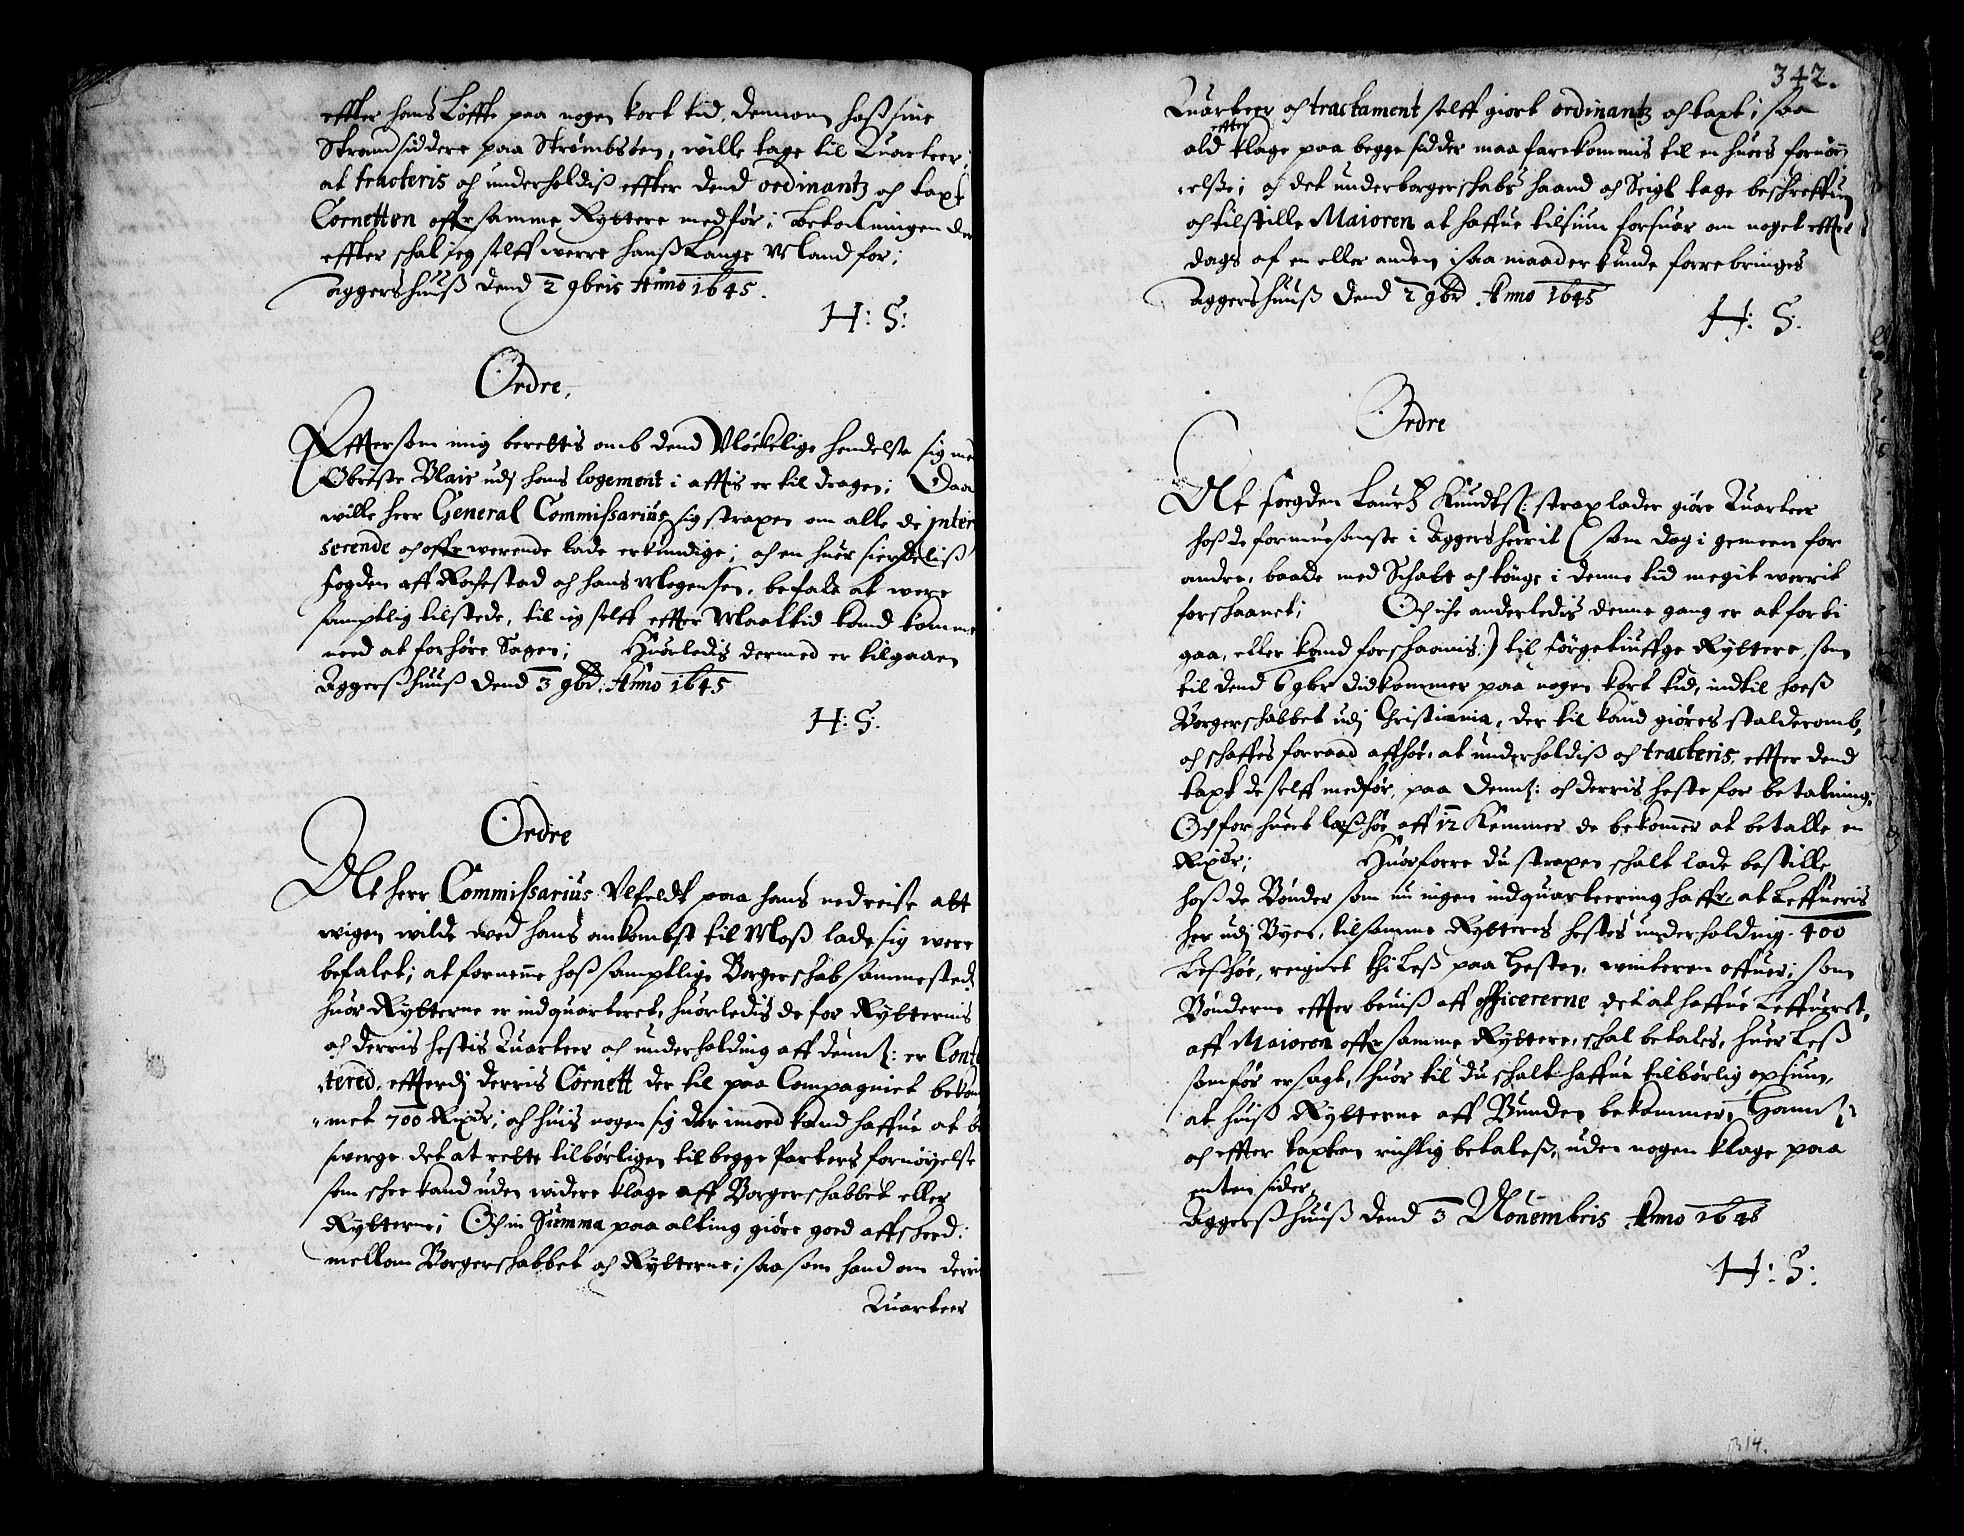 effter hans Løffte paa nogen kort tid, dennem hoß sine
Strandsiddere paa Strømbsøen, wille tage til Quarteer,
at tracteris och underholdiß effter dend ordinantz och taxt
Cornetten offr samme Ryttere medfør; Betalningen der
effter schal ieg selff werre hanß Lange Mand for;
Aggershuuß dend 2 9bris Anno 1645.
H: S:
Ordre,
Efftersom mig berettis omb dend Vløckelige hendelse sig med
Obriste Blair udj hans logement i afftis er til dragen; Daa
wille herr General Commissarius sig strapen om alle de inter
serende och offr werende lade erkundige; och en huer sierdeliß
fogden aff Rochestad och hans Mogensen, befale at were
samptlig tilstede, til ieg self effter Maaltid kand komme
need at forhøre Sagen; Huorledis dermed er tilgaaen
Aggerßhuuß dend 3 9br: Anno 1645
H: S.
Ordre
At herr Commissarius Vlfeldt paa hans nedreise att
wigen wilde wed hans ankombst til Moß lade sig were
befalet; at fornemme hoß samptlige Borgerschab sammesteds
huor Rytterne er indquarteret, huorledis de for Rytternis
och derris hestis Quarteer och underholding aff dennß: er Conten
tered, effterdj derris Cornett der til paa Compagniet bekom
met 700 Rixdr; och huis nogen sig der imoed kand haffue at be
swerge det at rette tilbørligen til begge Parters fornøyelse
som schee kand uden widere klage aff Borgerschabbet eller
Rytterne; Och in Summa paa alting giøre goed affscheed:
mellom Borgerschabbet och Rytterne; saa som hand om derris
Quarteer
342.
Quarteer och tractament selff giort ordinantz och taxt; saa
effter
ald klage paa begge sidder maa forekommis til en huers fornøy
elße; och det under borgerschabs haand och Seigl tage beschreffuen
och tilstille Maioren at haffue tilsiun forsuar om noget effter
dags af en eller anden i saa maader kunde forrebringes
Aggershuuß dend 2 9br Anno 1645
H: S.
Ordre
At fogden Lauritz Knudtß: strax lader giøre Quarteer
hoß de formuesomste i Aggersherrit (som dog i gemeen for
andre, baade med Schatt och tønge i denne tid megit werrit
forschaanet; Och iche anderledis denne gang er at forbi
gaa, eller kand forschaanis:) til førgetiuffge Ryttere, som
til dend 6 9br didkommer paa nogen kort tid, indtil hoeß
Borgerschabbet udj Christiania, der til kand giøres stalderomb,
och schaffes forraad aff høe, at underholdiß och tracteris, effter dend
taxt de selff medfør, paa dennß: och derris heste for betalning;
Och for huert laß høe aff 12 Kemmer de bekommer at betalle en
Rixdr; Huorforre du strapen schalt lade bestille
hoß de Bønder som nu ingen indquarteering haffr, at Leffueris
her udj Byen, til samme Rytteres hestes underholding 400
Leß høe, reignet thi Leß paa Hesten, winteren offuer; som
Bønderne effter beuiß aff officererne det at haffue Leffueret,
aff Maioren offr samme Ryttere, schal betales, huer Leß
somfør er sagt, huor til du schalt haffue tilbørlig opsiun,
at huiß Rytterne aff Bunden bekommer, hannß:
och effter taxten richtig betaleß, uden nogen klage paa
enten sider,
Aggerßhuuß dend 3 Nouembris Anno 1645
H: S:
314.